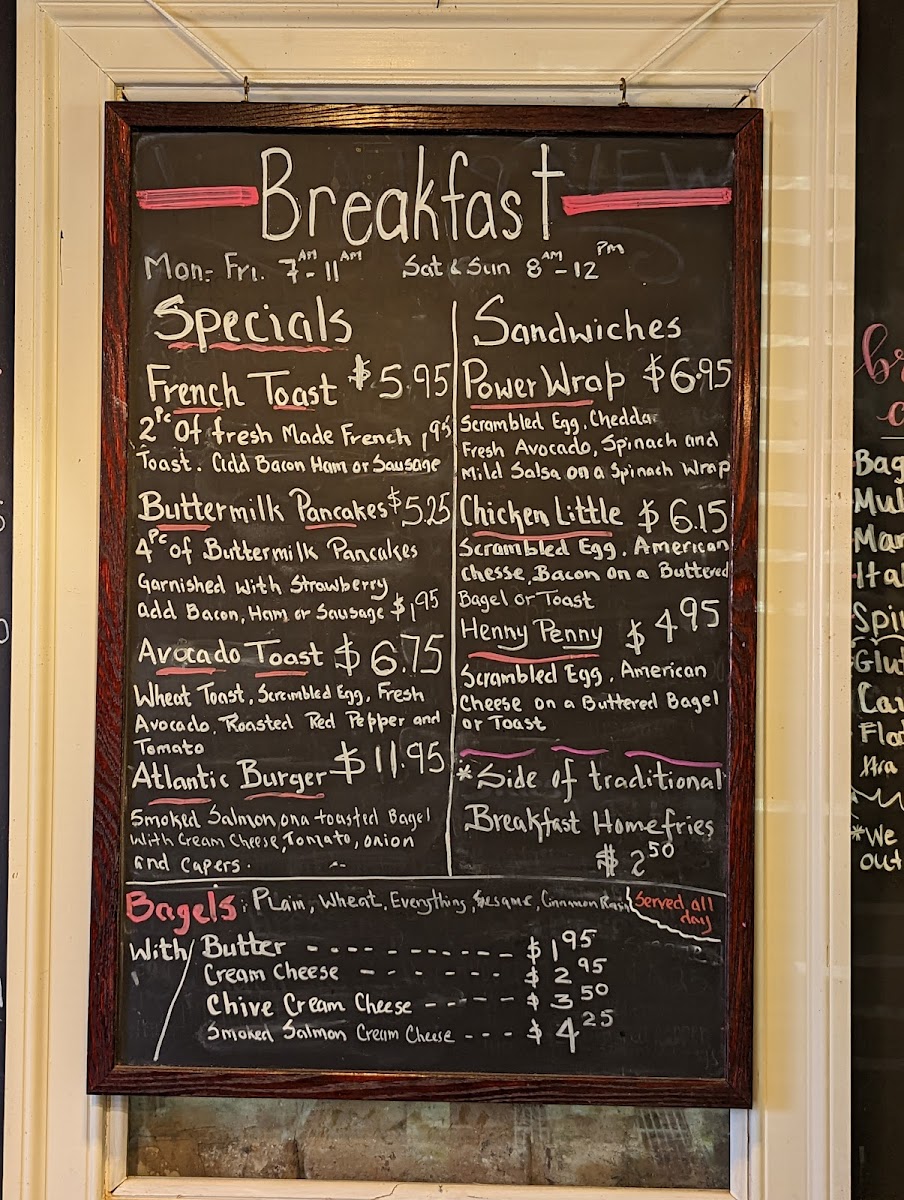 Breakfast
Mon- Fri. 7AM - 11AM Sat & Sun 8AM - 12PM
Specials
French Toast $5.95
2Pc Of fresh Made French 1.95
Toast. Add Bacon Ham or Sausage
Buttermilk Pancakes $5.25
4Pc of Buttermilk Pancakes
Garnished with Strawberry
add Bacon, Ham or Sausage $1.95
Avocado Toast $6.75
Wheat Toast, Scrembled Egg, Fresh
Avocado, Roasted Red Pepper and
Tomato
Atlantic Burger $11.95
Smoked Salmon, on a toasted Bagel
With Cream Cheese, Tomato, onion
and Capers.
Sandwiches
Power Wrap $6.95
Scrambled Egg, Cheddar
Fresh Avocado, Spinach and
Mild Salsa on a Spinach Wrap
Chicken Little $6.15
Scrambled Egg, American
chesse, Bacon on a Buttered
Bagel or Toast
Henny Penny $4.95
Scrambled Egg, American
Cheese on a Buttered Bagel
or Toast
*Side of traditional
Breakfast Homefries
$2.50
Bagels: Plain, Wheat, Everything, Sesame, Cinnamon Raisin
Served all
day
With/ Butter - - - - - - - - - - - $1.95
Cream Cheese - - - - - - - $2.95
Chive Cream Cheese - - - - - $3.50
Smoked Salmon Cream Cheese - - - $4.25
br
c
Bag
Mul
Mar
Ital
Spi
Glut
Flat
Xtra
*We
out